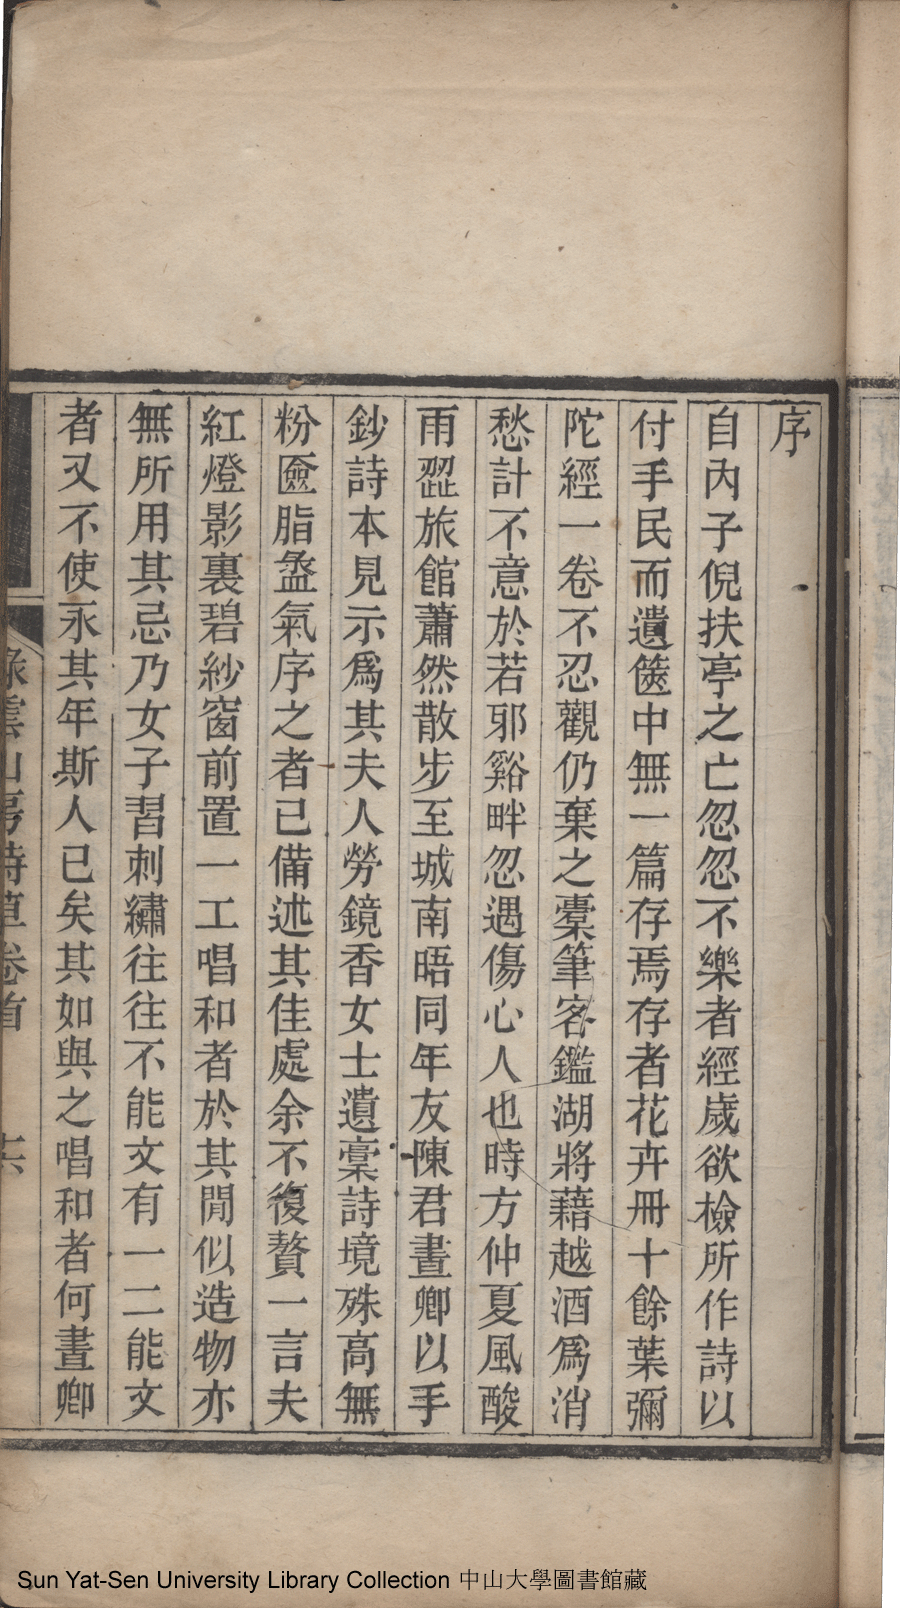 序
自內子倪扶亭之亡忽忽不樂者經歲欲檢所作詩以
付手民而遺篋中無一篇存焉存者花卉冊十餘葉彌
陀經一卷不忍觀仍棄之櫜筆客鑑湖將藉越酒爲消
愁計不意於若邪谿畔忽遇傷心人也時方仲夏風酸
雨澀旅館蕭然散步至城南晤同年友陳君晝卿以手
鈔詩本見示爲其夫人勞鏡香女士遺稾詩境殊高無
粉匳脂盝氣序之者已備述其佳處余不復贅一言夫
紅燈影裏碧紗窗前置一工唱和者於其閒似造物亦
無所用其忌乃女子習刺繡往往不能文有一二能文
者又不使永其年斯人已矣其如與之唱和者何晝卿
綠雲山房詩草卷首
Sun Yat-Sen University Library Collection 中山大學圖書館藏